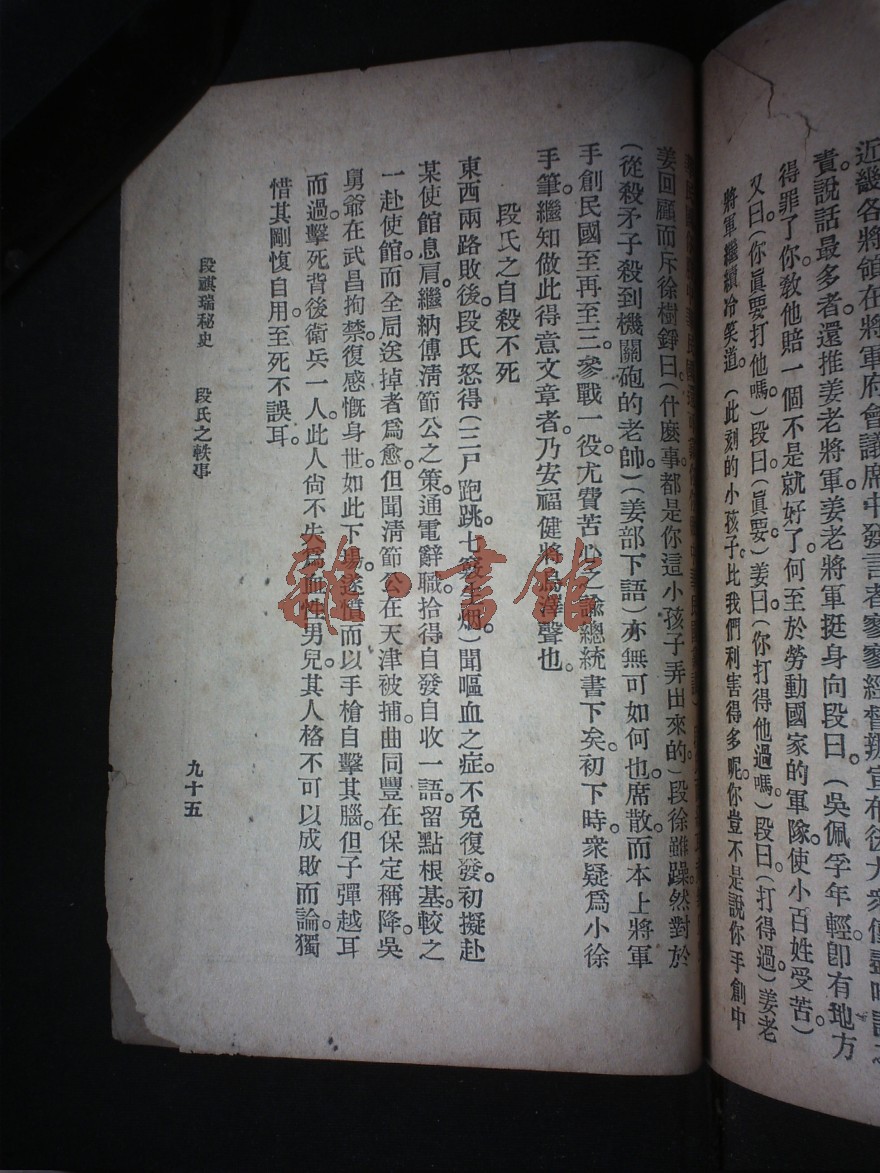 近畿各將領在將軍府會議席中發言者寥寥經督辦宣布後大衆僅
責。說話最多者還推姜老將軍姜老將軍挺身向段曰。(吳佩孚年輕卽有地方
得罪了你。敎他賠一個不是就好了。何至於勞動國家的軍隊。使小百姓受苦)
又曰(你眞要打他嗎。)段曰(眞要)姜曰(你打得他過嗎。)段曰(打得過)姜老
將軍繼續冷笑道。(此刻的小孩子。比我們利害得多呢。你豈不是說你手創中
姜回顧而斥徐樹錚曰(什麼事都是你這小孩子弄出來的)段徐雖躁然對於
(從殺矛子殺到機關砲的老帥)(姜部下語)亦無可如何也。席散。而本上將軍
手創民國至再至三。參戰一役。尤費苦心之諭總統書下矣。初下時。衆疑爲小徐
手筆。繼知做此得意文章者。乃安福健將烏澤聲也。
段氏之自殺不死
東西兩路敗後。段氏怒得(三尸跑跳。七竅生烟。)聞嘔血之症。不免復發。初擬赴
某使館息肩。繼納傅淸節公之策。通電辭職。拾得自發自收一語。留點根基。較之
一赴使館。而全局送掉者爲愈。但聞淸節公在天津被捕。曲同豐在保定稱降。吳
舅爺在武昌拘禁。復感慨身世。如此下場。遂憤而以手槍自擊其腦。但子彈越耳
而過。擊死背後衛兵一人。此人尙不失爲血性男兒。其人格不可以成敗而論。獨
惜其剛愎自用。至死不誤耳。
段祺瑞秘史 段氏之軼事
九十五
雜·書館